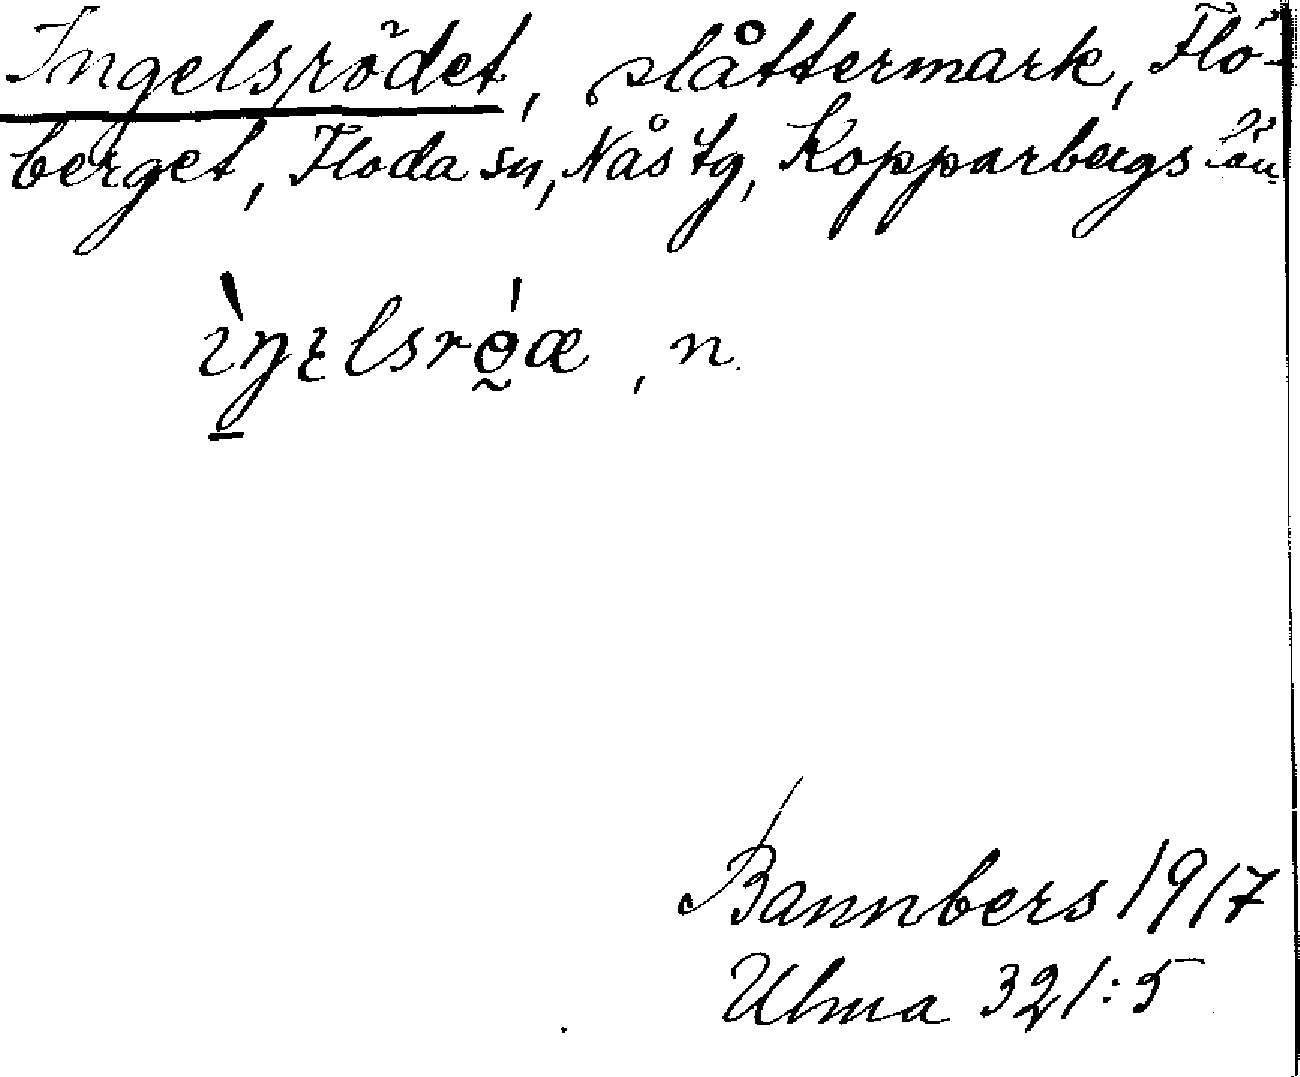 Ingelsrödet, slåttermark, Flö-
berget, Floda sn, Nås tg, Kopparbergs län
ìŋɛlsrö́æ, n.
Bannbers 1917
Ulma 321:5